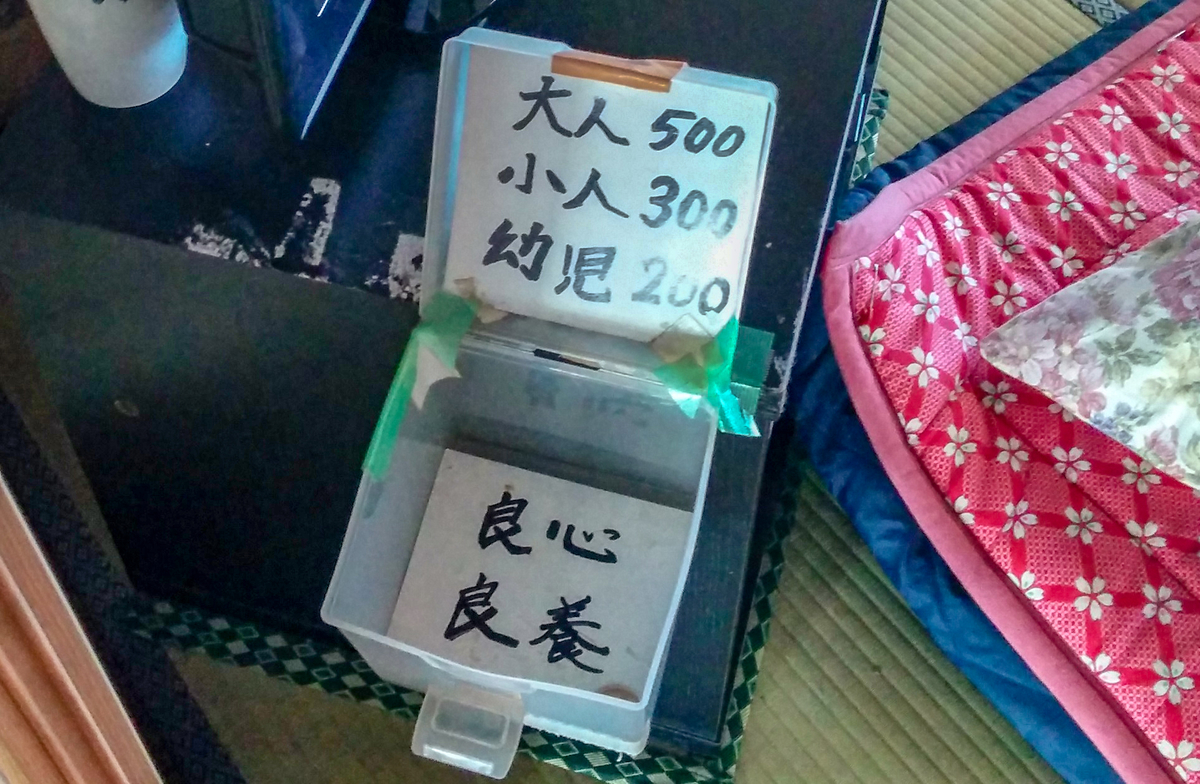 大人 500
小人 300
幼児 200
良心
良養